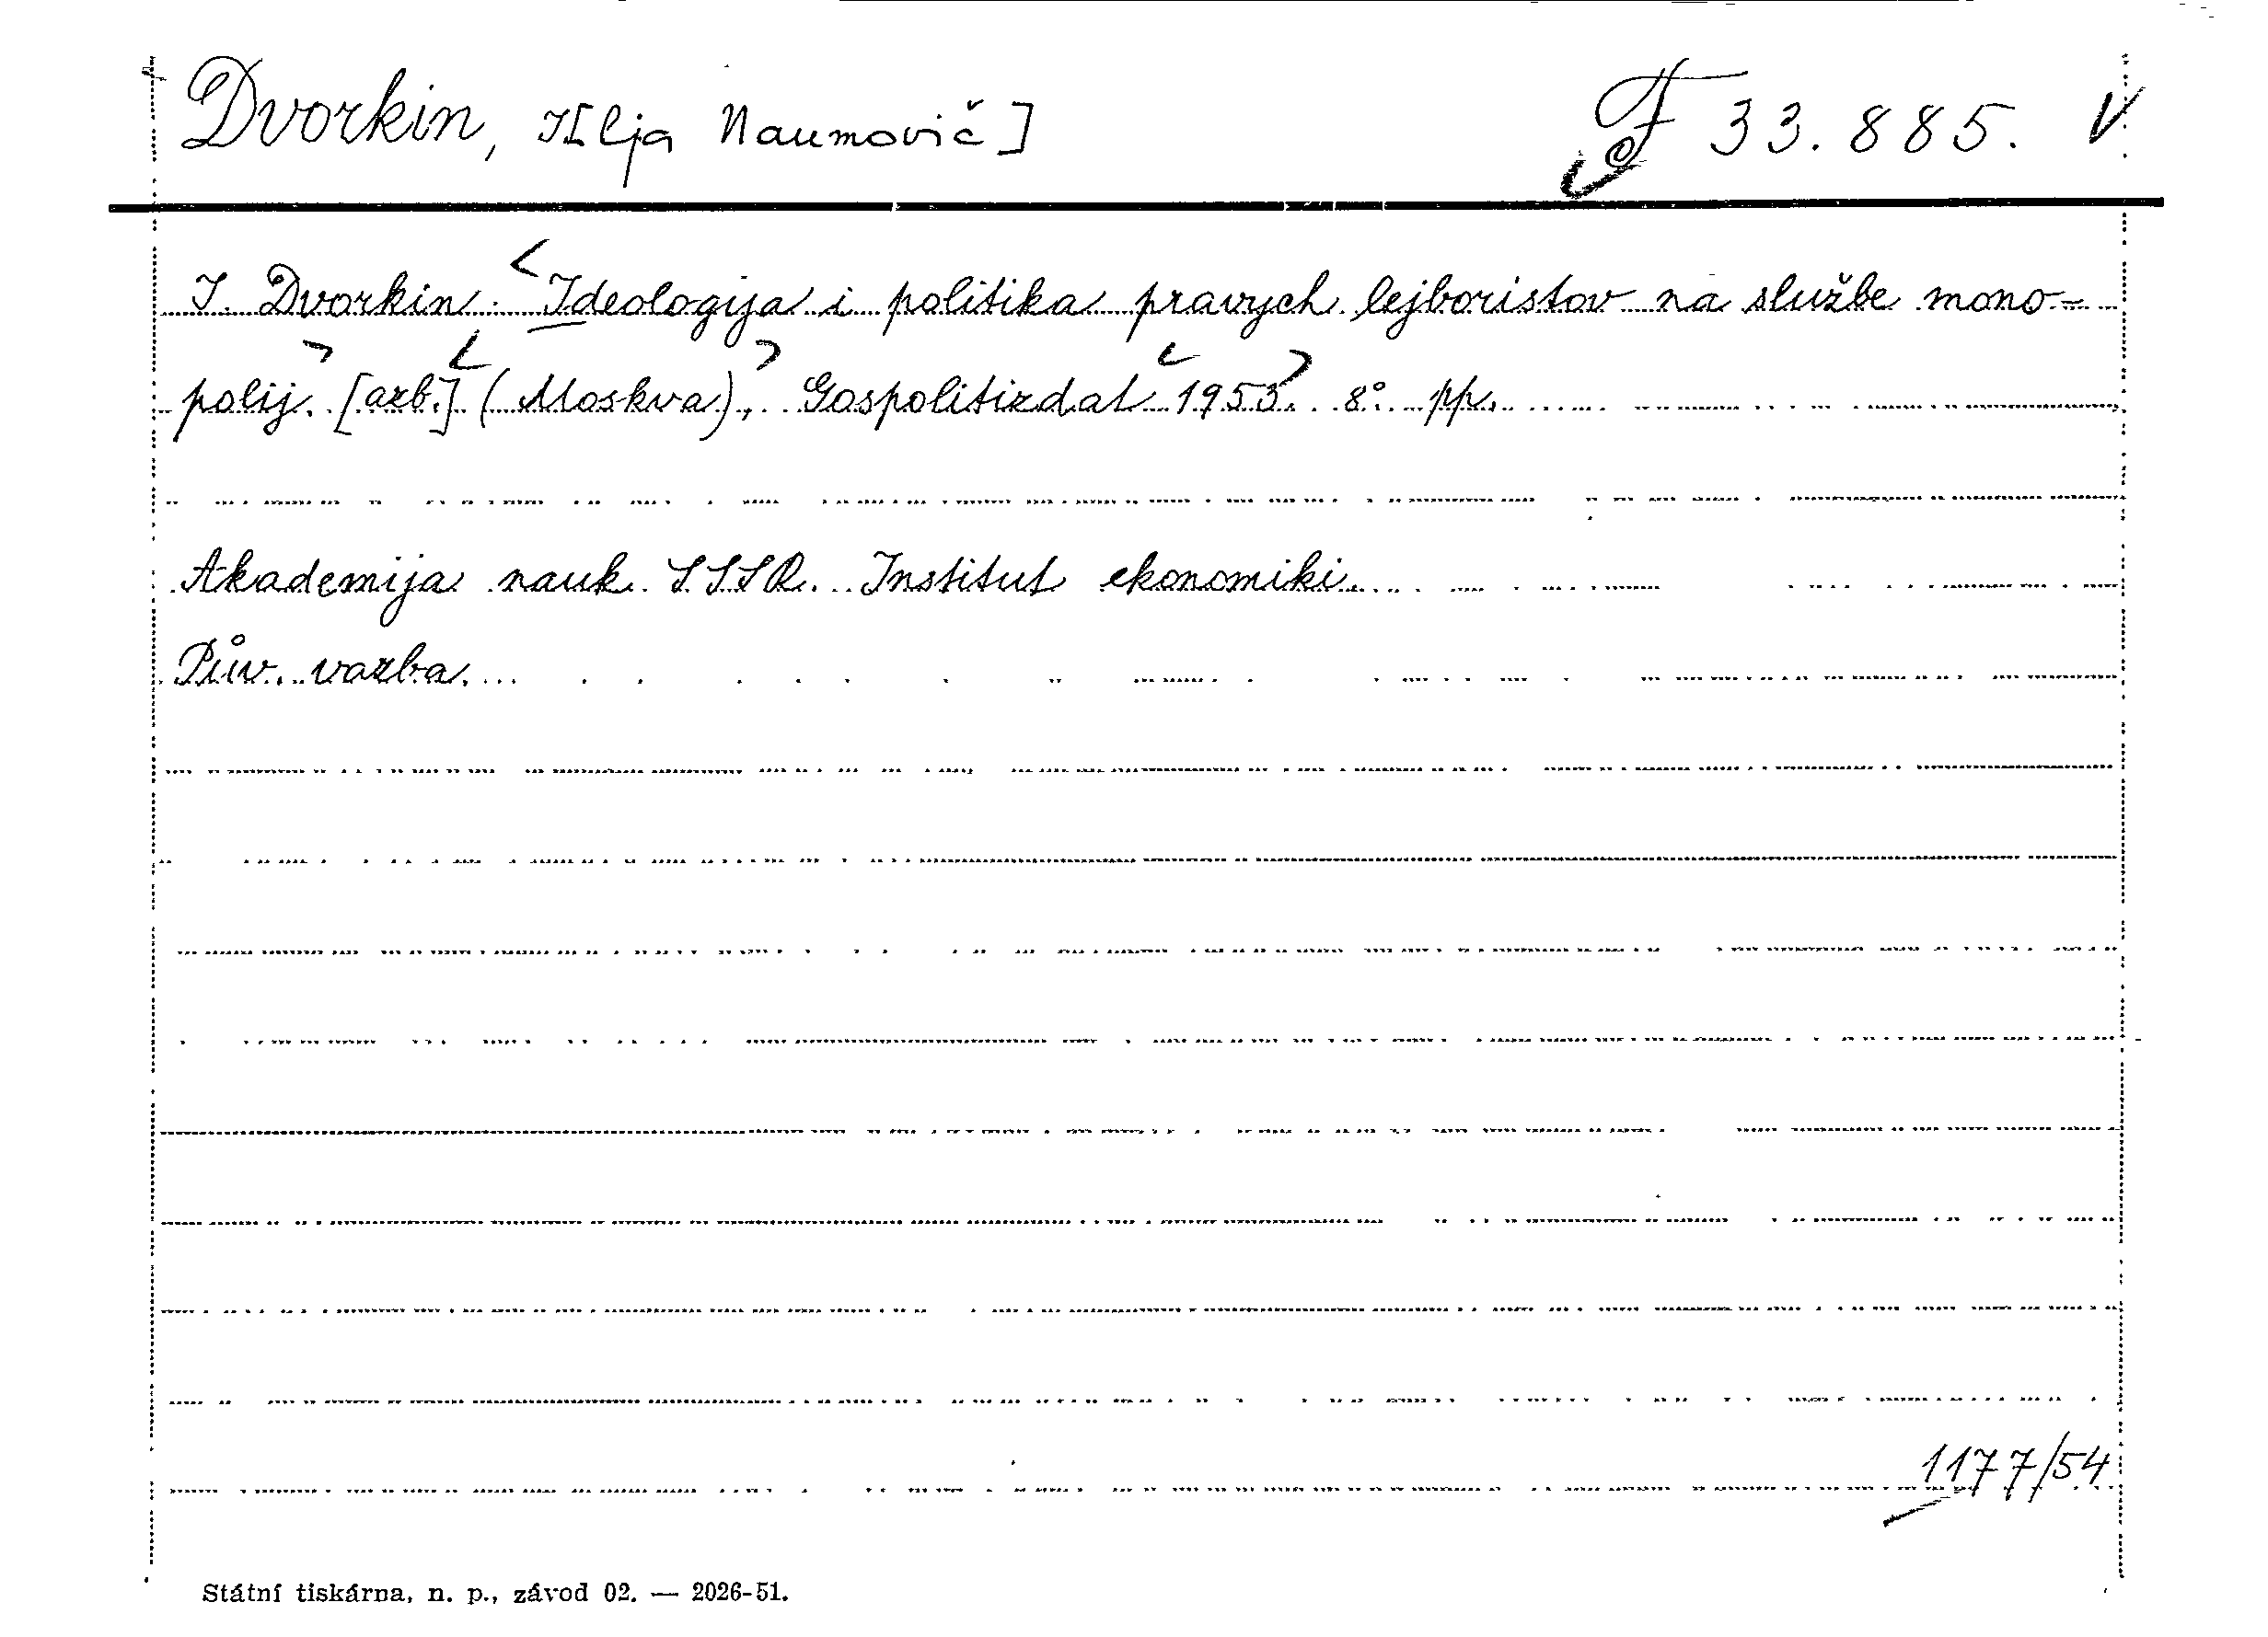 Dvorkin, I[lja Naumovič] F 33.885. V
I. Dvorkin: Ideologija i politika pravych lejboristov na službe mono-
polij. [azb.] (Moskva), Gospolitizdat 1953. 8°. pp.
Akademija nauk SSSR. Institut ekonomiki.
Pův. vazba.
1177/54
Státní tiskárna, n. p., závod 02. — 2026-51.